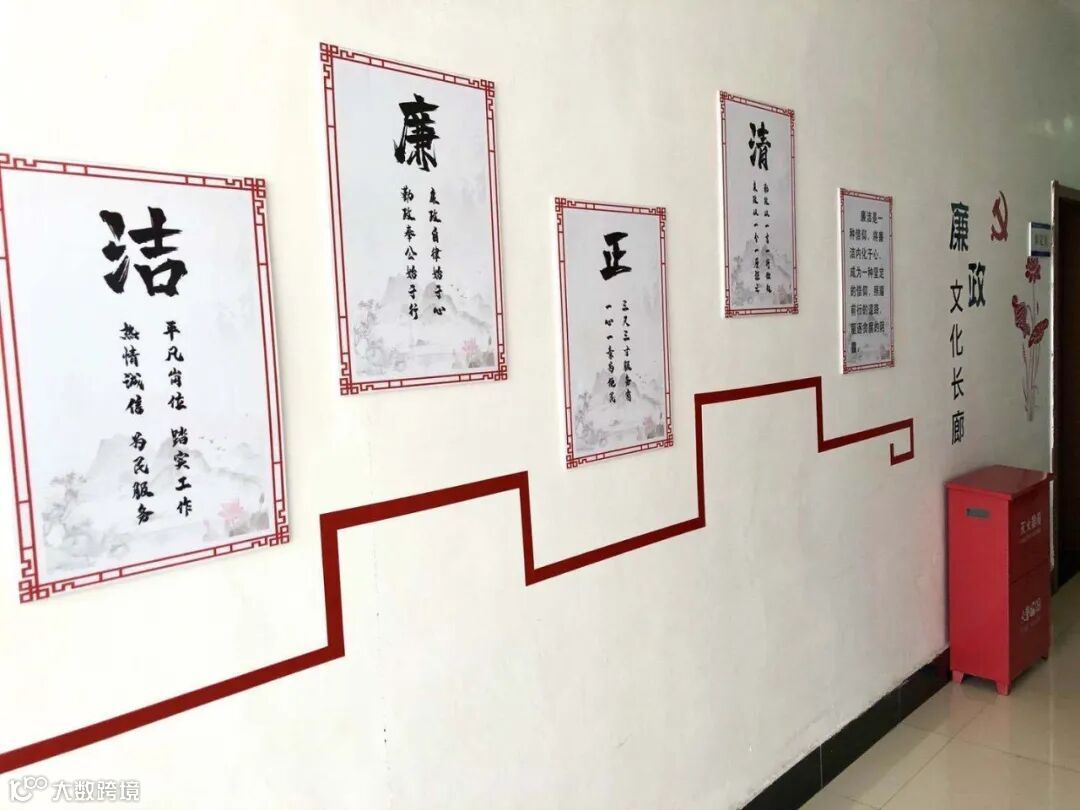 洁
平凡岗位 踏实工作
热情诚信 为民服务
廉
廉政自律惦于心
勤政奉公恪于行
正
三尺三寸服务窗
一心一意为便民
清
廉洁是一
种信仰，将廉
洁内化于心、
成为一种坚定
的信仰，照耀
前行的道路，
廉政
文化长廊
灭火器箱
大数跨境